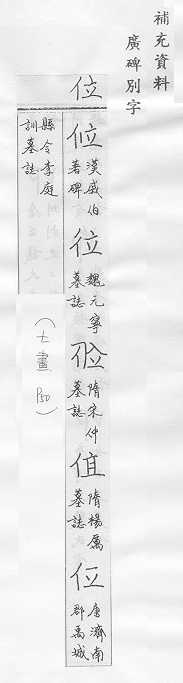 補充資料
廣碑別字
位
漢戚伯
著碑
魏元寧
墓誌
隋宋仲
墓誌
隋楊厲
墓誌
位
唐濟南
郡禹城
縣令李庭
訓墓誌
(七畫 P50)